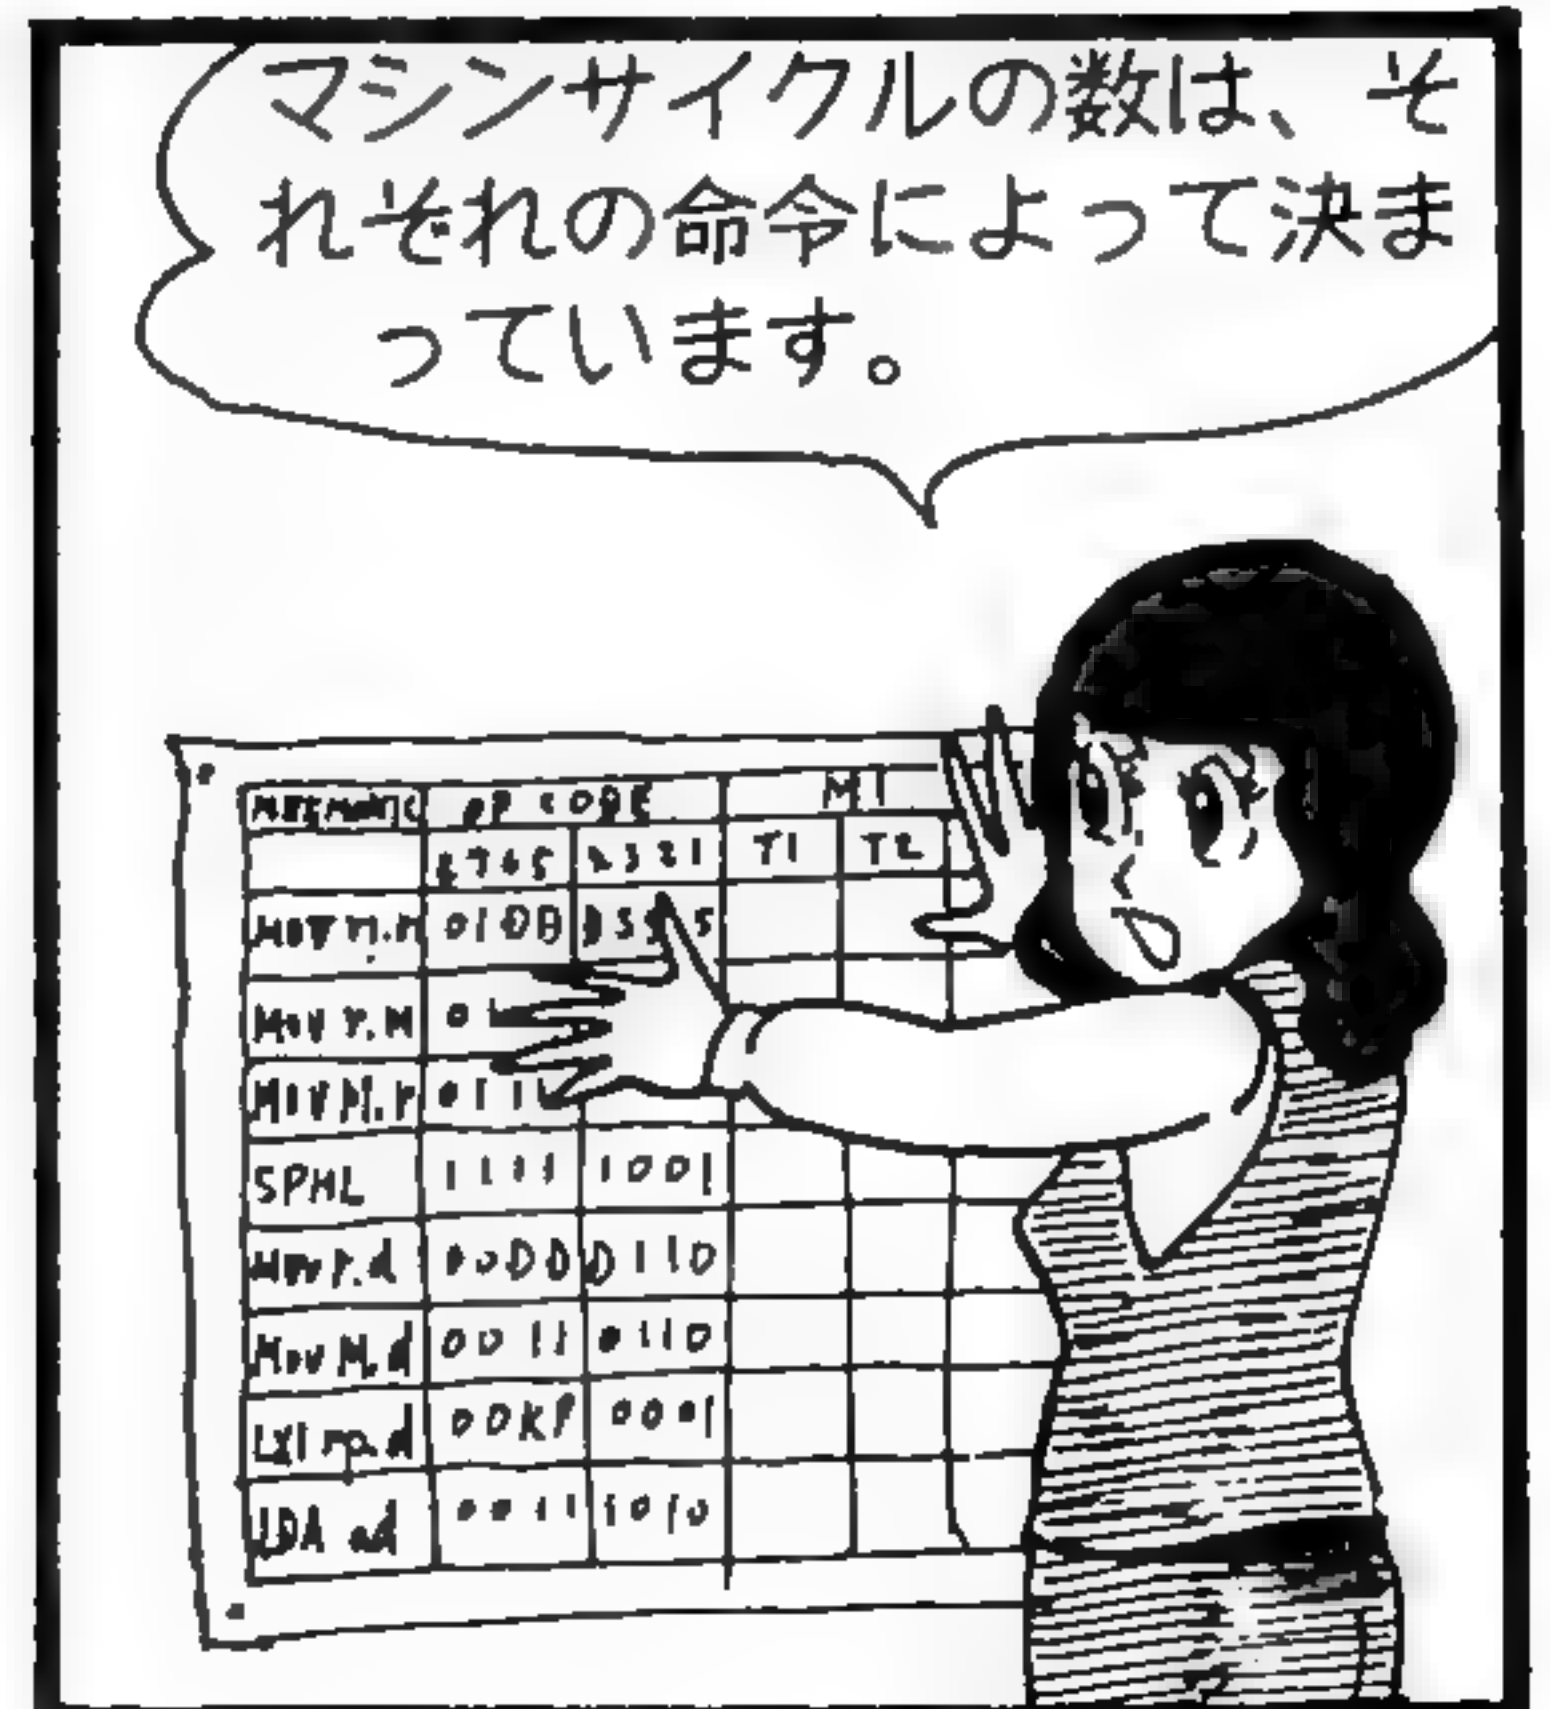 マシンサイクルの数は、そ
れぞれの命令によって決ま
っています。
MNEMONIC OP CODE M1
T1 T2
MOV
MOV r.M 0
MOV M.r 011
SPHL 1111 1001
00DD D110
MOV M.d 0011 0110
LXI rp.d 0001
LDA ad 0011 1010